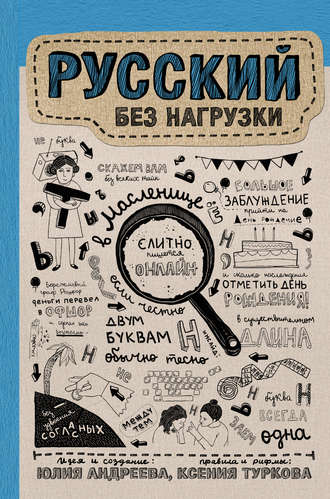 РУССКИЙ
БЕЗ НАГРУЗКИ
не буква
СКАЖЕМ ВАМ
без всяких
в масленице
БОЛЬШОЕ
ЗАБЛУЖДЕНИЕ
прийти на
день рождение
СЛИТНО
пишется
ОНЛАЙН
и сказав
ОТМЕТИТЬ ДЕНЬ
РОЖДЕНИЯ!
Бережливый
граф
деньги перевел
в ОФШОР
сделал
если честно
ДВУМ
БУКВАМ
Н
обычно тесно
в существительном
ДЛИНА
не
буква
Н
ВСЕГДА
одна
без удвоения
СОГЛАСНЫХ
между
тем
ЗАЧЕМ
Идея и создание:
правила и рифмы:
ЮЛИЯ АНДРЕЕВА, КСЕНИЯ ТУРКОВА